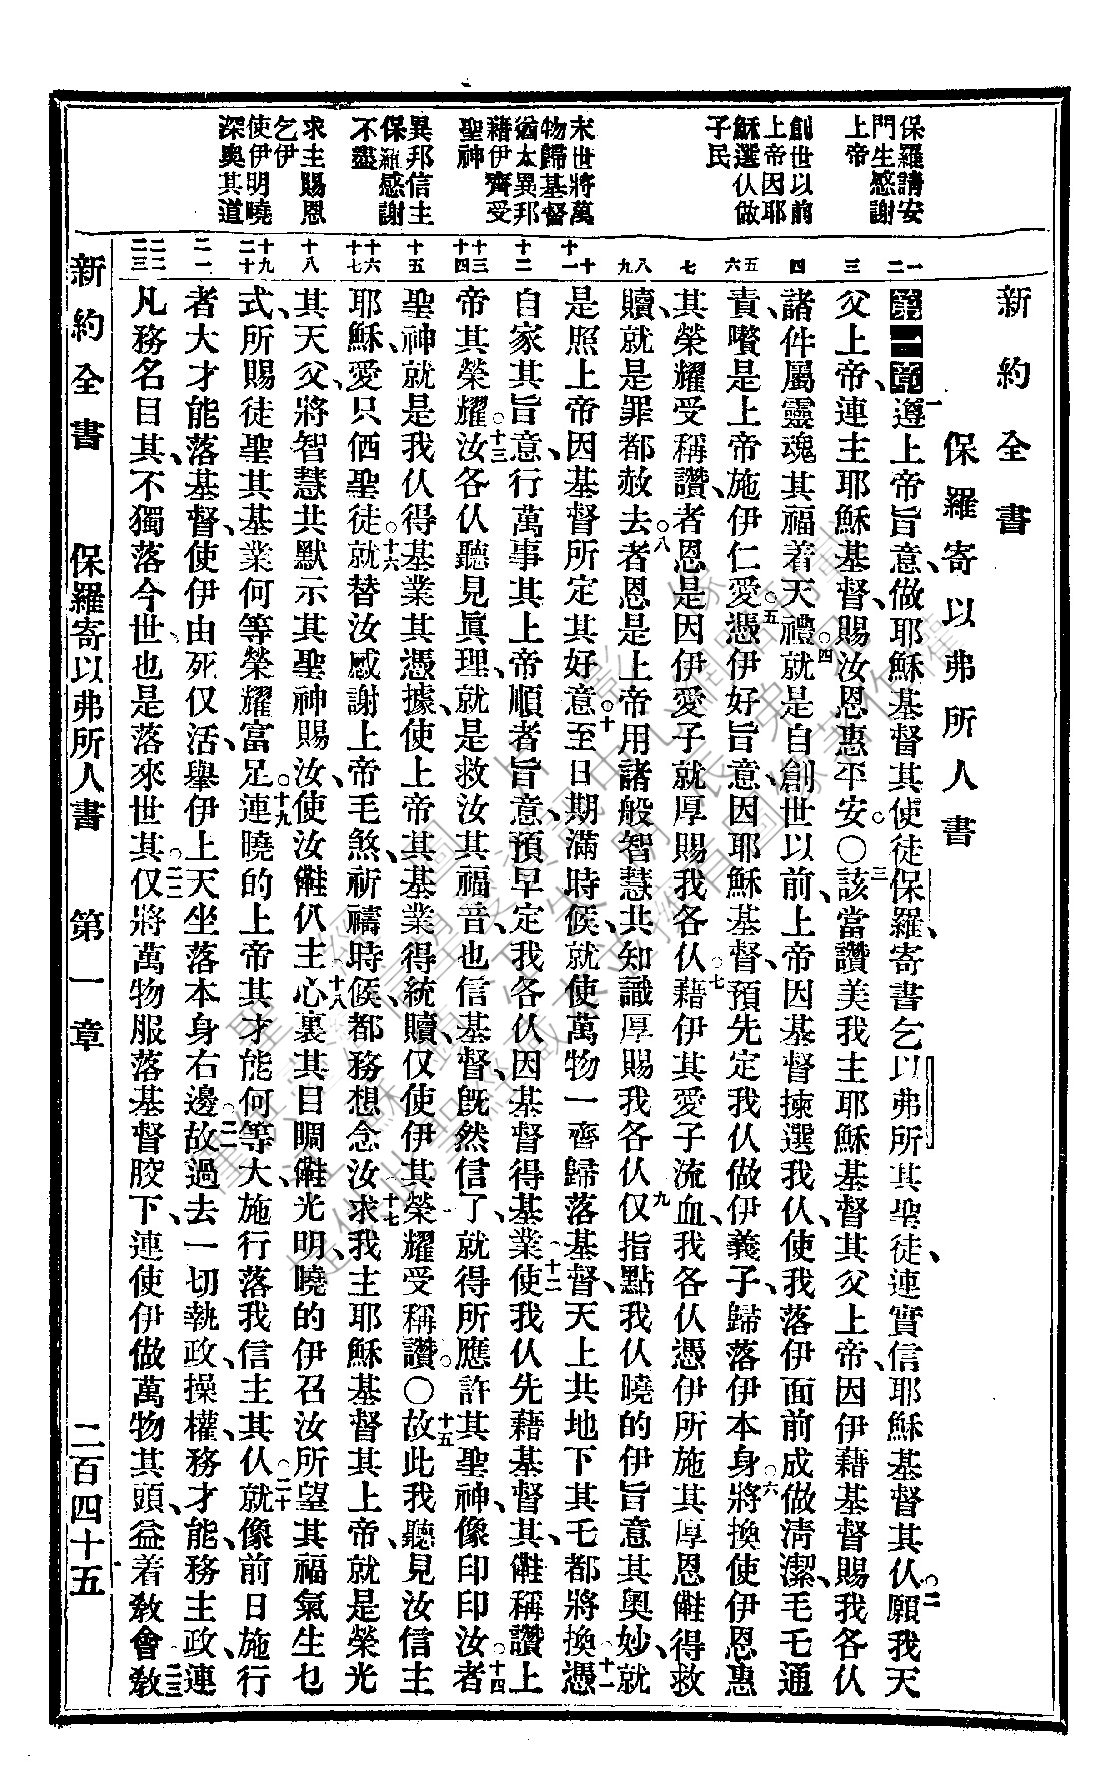 新約全書
保羅寄以弗所人書
保羅請安
門生感謝
上帝
創世以前
上帝因耶
穌選仈做
子民
末世將萬
物歸基督
猶太異邦
藉伊齊受
聖神
異邦信主
保羅感謝
不盡
求主賜恩
乞伊
使伊明曉
深奧其道
一
二
三
四
五
六
七
八
九
十
十一
十二
十三
十四
十五
十六
十七
十八
十九
二十
二一
二二
二三
第一章一遵上帝旨意、做耶穌基督其使徒保羅、寄書乞以弗所其聖徒、連實信耶穌基督其仈。二願我天
父上帝、連主耶穌基督、賜汝恩惠平安。〇三該當讚美我主耶穌基督其父上帝、因伊藉基督賜我各仈
諸件屬靈魂其福着天。四禮就是自創世以前、上帝因基督揀選我仈、使我落伊面前成做清潔、毛乇通
責嘖是上帝施伊仁愛。五憑伊好旨意、因耶穌基督、預先定我仈做伊義子、歸落伊本身。六將換使伊恩惠
其榮耀受稱讚、者恩是因伊愛子就厚賜我各仈。七藉伊其愛子流血、我各仈憑伊所施其厚恩㑚得救
贖、就是罪都赦去。八者恩是上帝用諸般智慧共知識厚賜我各仈、九仅指點我仈曉的伊旨意其奧妙、就
是照上帝因基督所定其好意。十至日期滿時候、就使萬物一齊歸落基督、天上共地下其乇都將換憑
自家其旨意、行萬事其上帝順者旨意、預早定我各仈因基督得基業。十二使我仈先藉基督其、㑚稱讚上
帝其榮耀。十三汝各仈聽見眞理、就是救汝其福音、也信基督、既然信了、就得所應許其聖神、像印印汝。十四者
聖神就是我仈得基業其憑據、使上帝其基業得統贖、仅使伊其榮耀受稱讚。〇十五故此我聽見汝信主
耶穌、愛只倆聖徒。十六就替汝感謝上帝毛煞、祈禱時候、都務想念汝。十七求我主耶穌基督其上帝、就是榮光
其天父、將智慧共默示其聖神賜汝、十八使汝㑚仈主心裏其目睭㑚光明、曉的伊召汝所望其福氣生乜
式、所賜徒聖其基業何等榮耀富足。十九連曉的上帝其才能何等大、施行落我信主其仈。二十就像前日施行
者大才能落基督、使伊由死仅活、舉伊上天坐落本身右邊。二一故過去一切執政、操權、務才能、務主政、連
凡務名目其、不獨落今世、也是落來世其。二二仅將萬物服落基督骹下、連使伊做萬物其頭、益着教會。二三教
新約全書
保羅寄以弗所人書
第一章
二百四十五